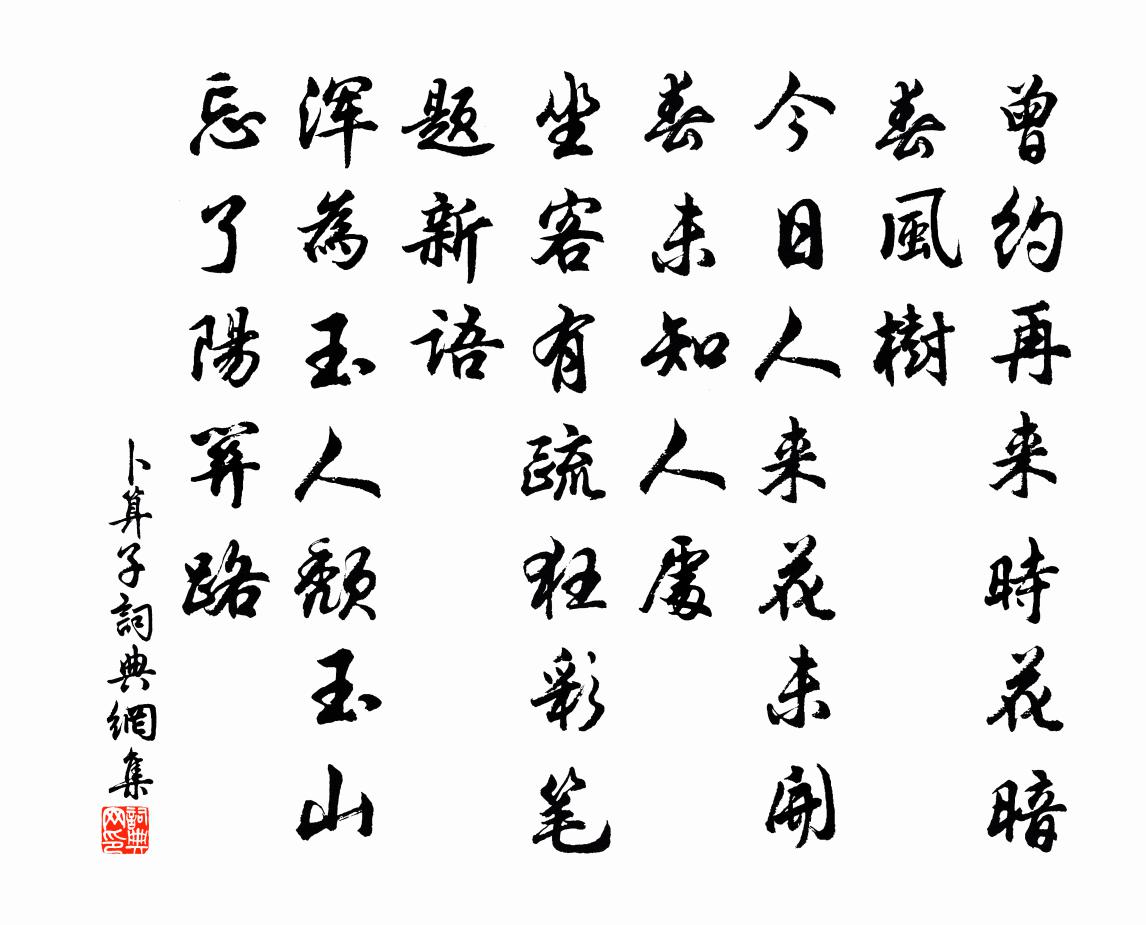 曾約再来時花暗
春風樹
今日人来花未開
春未知人處
坐客有疏狂彩笔
題新語
渾為玉人頹玉山
忘了陽關路
卜算子詞典網集
詞典网印